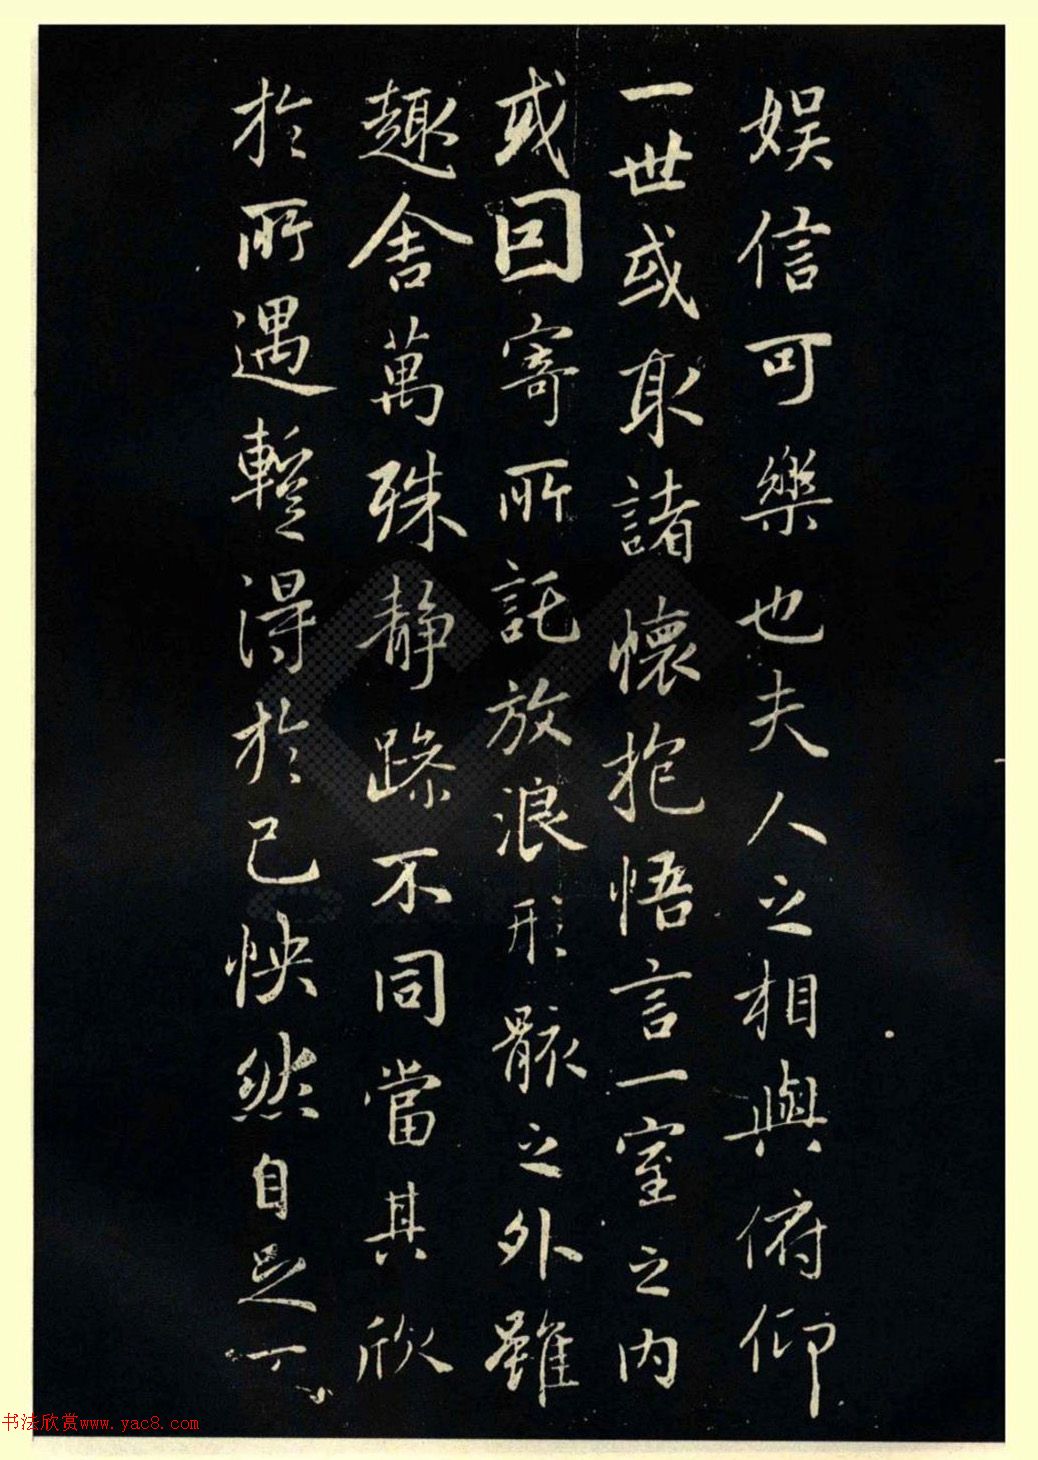 娱信可樂也夫人之相與俯仰
一世或取諸懷抱悟言一室之内
或因寄所託放浪形骸之外雖
趣舍萬殊静躁不同當其欣
於所遇暫得於己怏然自足不
书法欣赏www.yac8.com